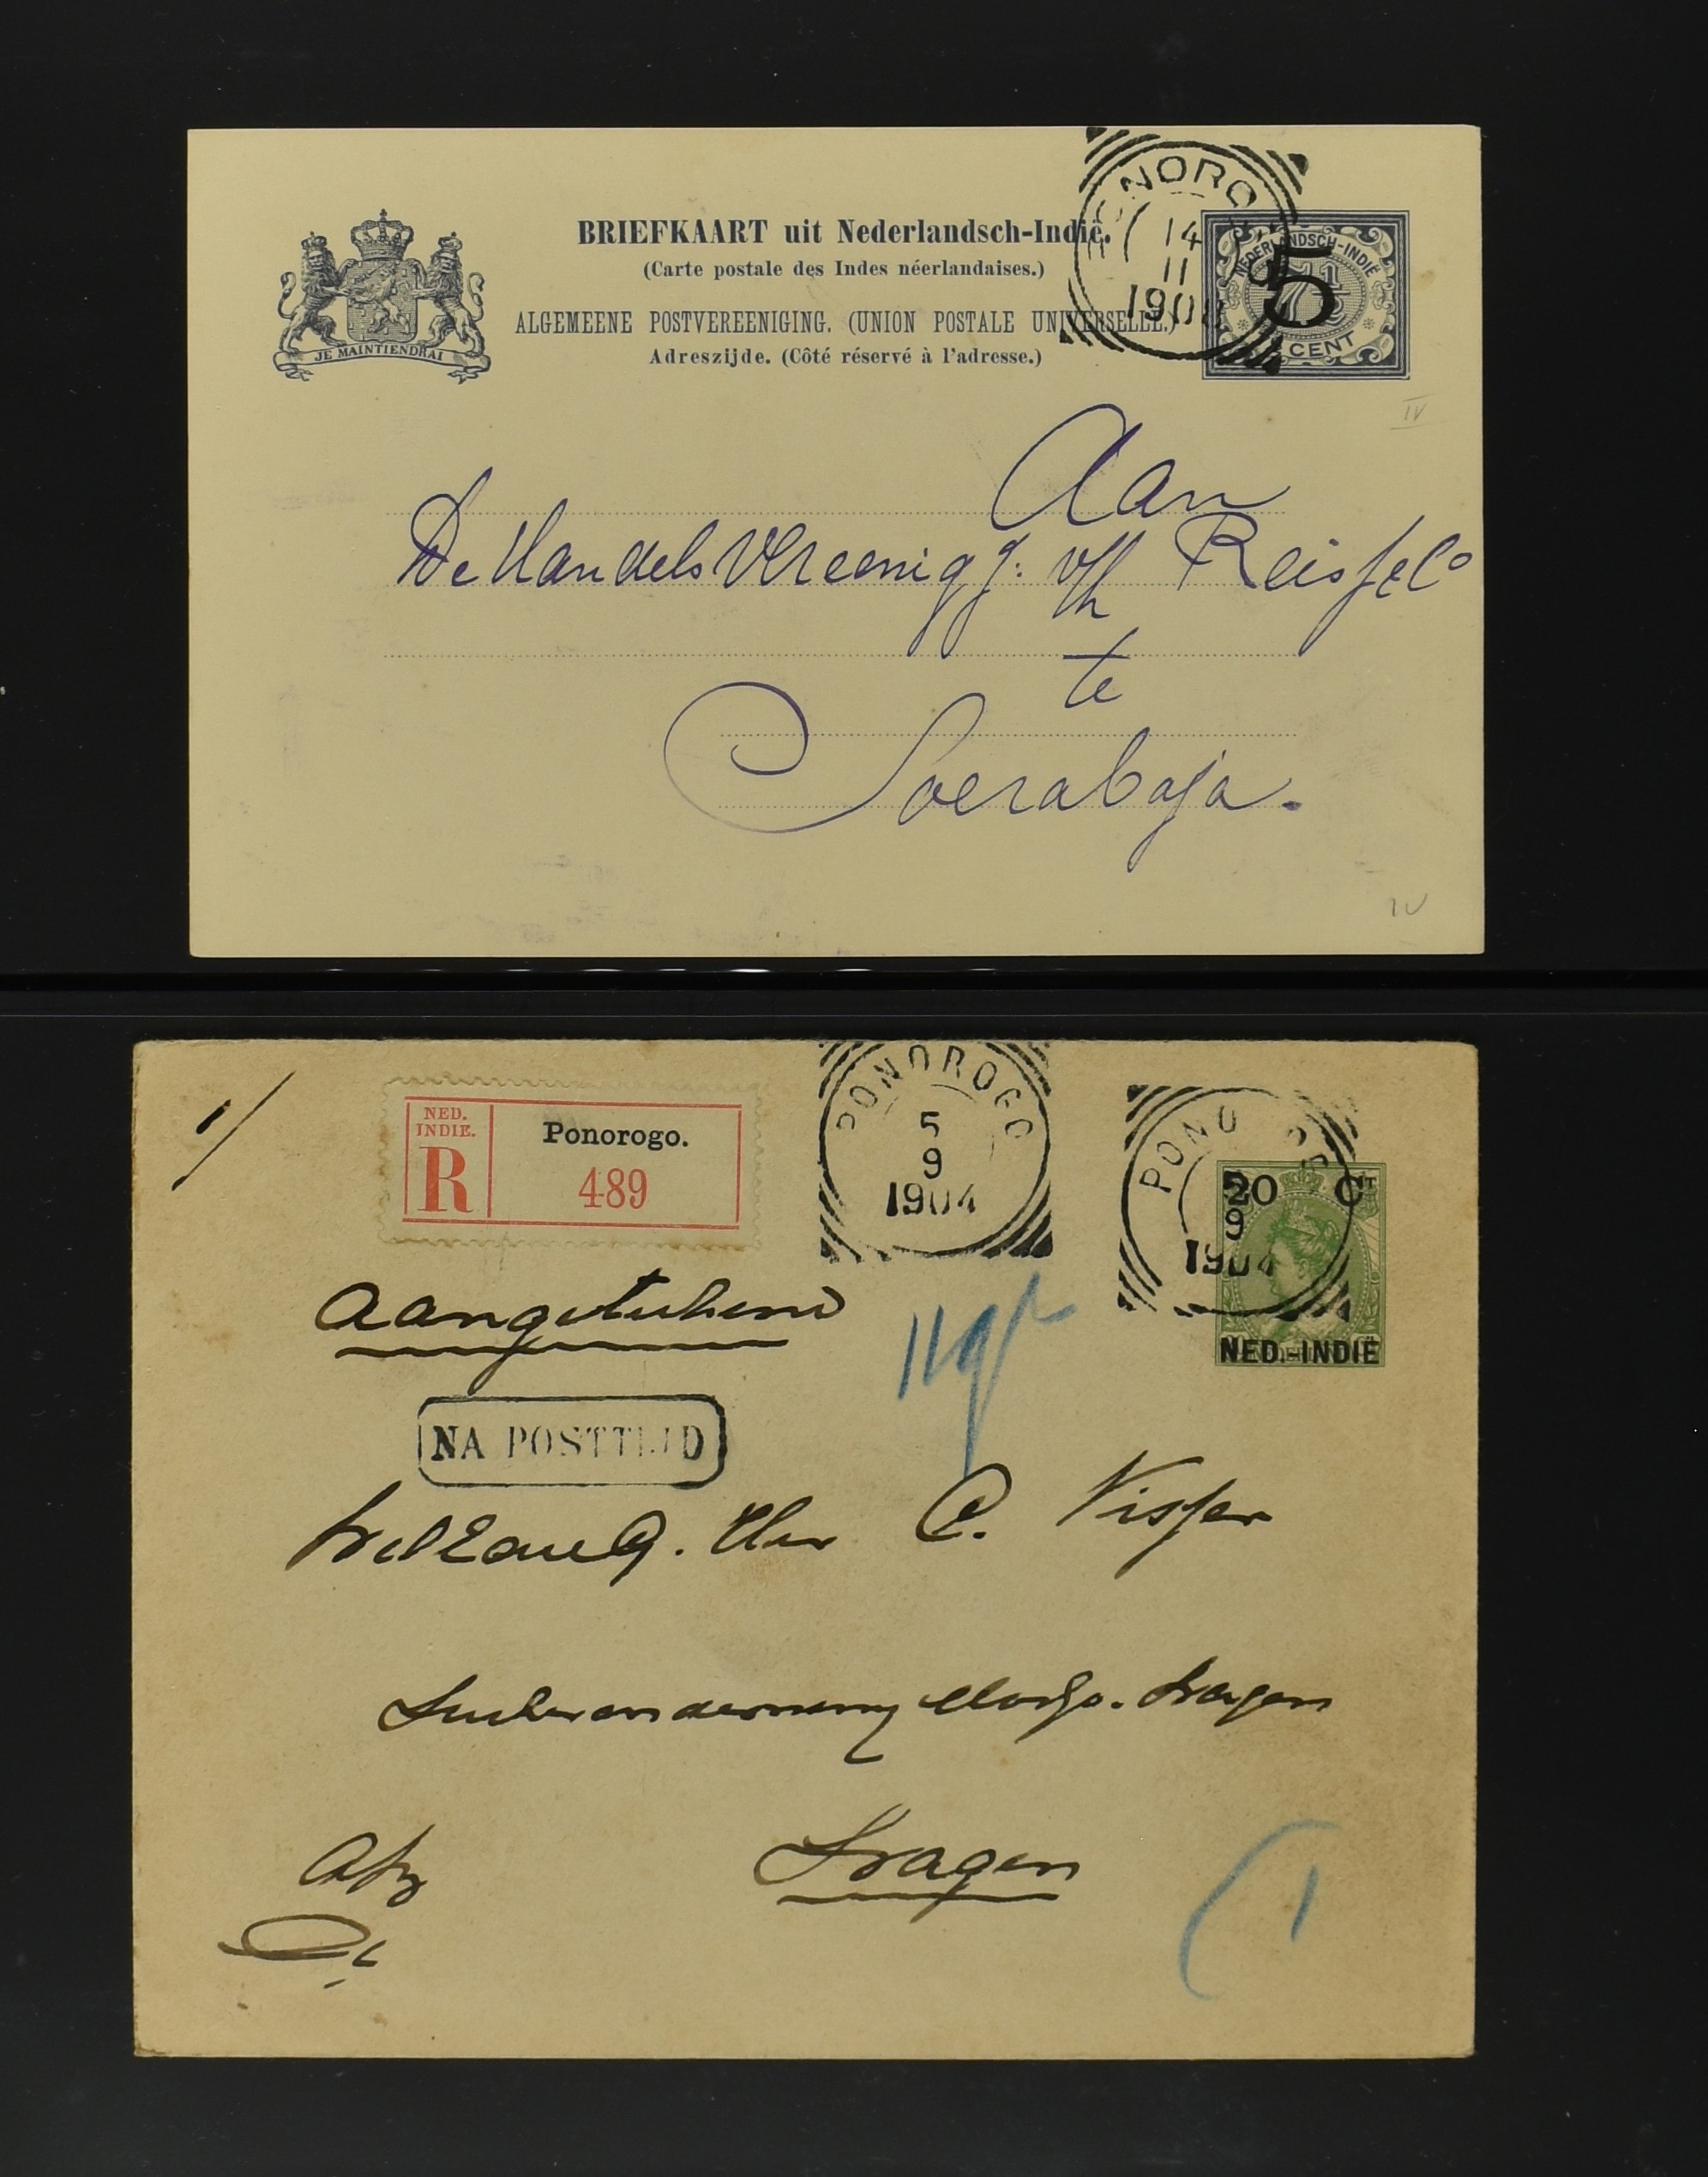 BRIEFKAART uit Nederlandsch-Indië.
(Carte postale des Indes néerlandaises.)
ALGEMEENE POSTVEREENIGING. (UNION POSTALE UNIVERSELLE.)
Adreszijde. (Côté réservé à l'adresse.)
JE MAINTIENDRAI
14
11
1908
NEDERLANDSCH-INDIË
7½
5
CENT
IV
Aan
De Handels Vereenigg: v/h Reiss & Co
te
Soerabaja.
IV
NED.
INDIË.
R
Ponorogo.
489
PONOROGO
5
9
1904
PONO
9
1904
20 CT
NED.-INDIË
Aangeteekend
NA POSTTIJD
WelEdelG. Heer C. Visser
Suikeronderneming Modjo-Sragen
Sragen
Afz
1